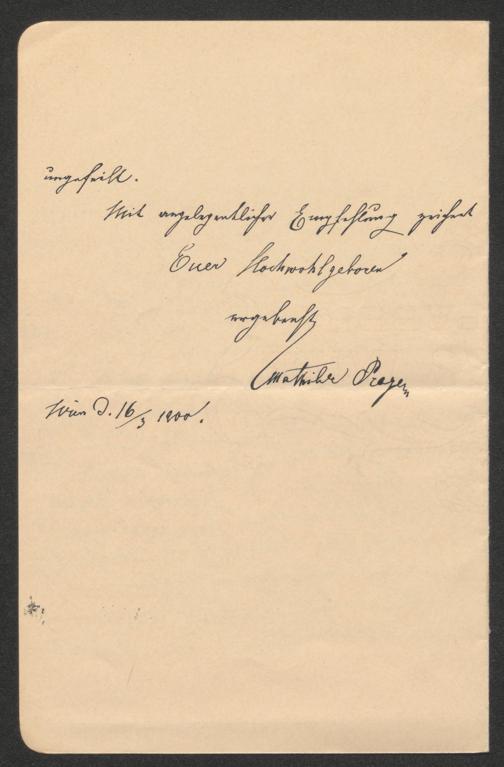 ungeheilt.
Mit angelegentlicher Empfehlung zeichnet
Euer Hochwohlgeboren
ergebenst
Mathilde
Wien d. 16/3 1900.